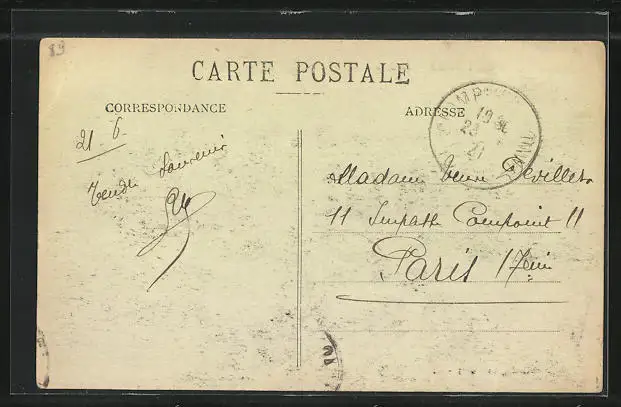 89
CARTE POSTALE
CORRESPONDANCE
ADRESSE
21 6
Tendre Souvenir
19
23
21
Madame Devillers
11 Impasse Compoint 11
Paris 17em